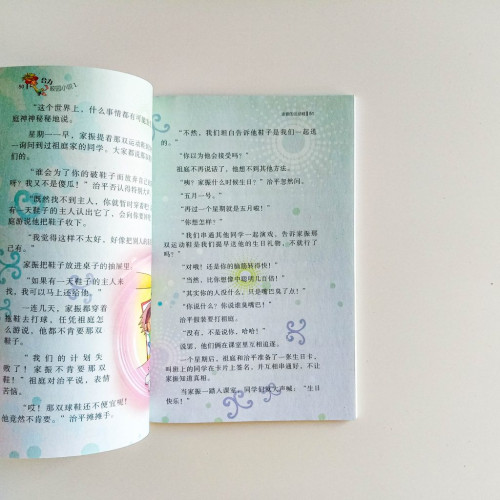 "这个世界上，什么事情都有可
庭神神秘秘地说。
星期一一早，家振提着那双运动鞋
一询问到过祖庭家的同学，大家都说那
们的。
"谁会为了你的破鞋子而放弃自
呀？我又不是傻瓜！"治平否认得特别大
"既然找不到主人，你就暂时穿着吧
有一天鞋子的主人认出它了，会向你要
庭游说他把鞋子收下。
"我觉得这样不太好，好像把别人的
己有。"
家振把鞋子放进桌子的抽屉里
"如果有一天鞋子的主人来
找，我可以马上还给他。"
一连几天，家振都穿着
拖鞋去打球，任凭祖庭怎么
游说，他都不肯要那双
鞋子。
"我们的计划失
败了！家振不肯要那双
鞋！"祖庭对治平说，表情
苦恼。
"哎！那双球鞋还不便宜呢！
他竟然不肯要。"治平摊摊手。
"不然，我们坦白告诉他鞋子是我们一起送
的。"
"你以为他会接受吗？"
祖庭不再说话了，他想不到其他方法。
"咦？家振什么时候生日？"治平忽然问。
"五月一号。"
"再过一个星期就是五月啦！"
"你想怎样？"
"我们串通其他同学一起演戏，告诉家振那
双运动鞋是我们提早送他的生日礼物，不就行了
吗？"
"对哦！还是你的脑筋转得快！"
"当然，比你想像中聪明几百倍！"
"其实你的人没什么，只是嘴巴臭了点！"
"你说什么？你说谁臭嘴巴！"
治平假装要打祖庭。
"没有，不是说你，哈哈！"
说罢，他们俩在课室里互相追逐。
一个星期后，祖庭和治平准备了一张生日卡，
叫班上的同学在卡片上签名，并互相串通好，不让
家振知道真相。
当家振一踏入课室，同学们就大声喊："生日
快乐！"